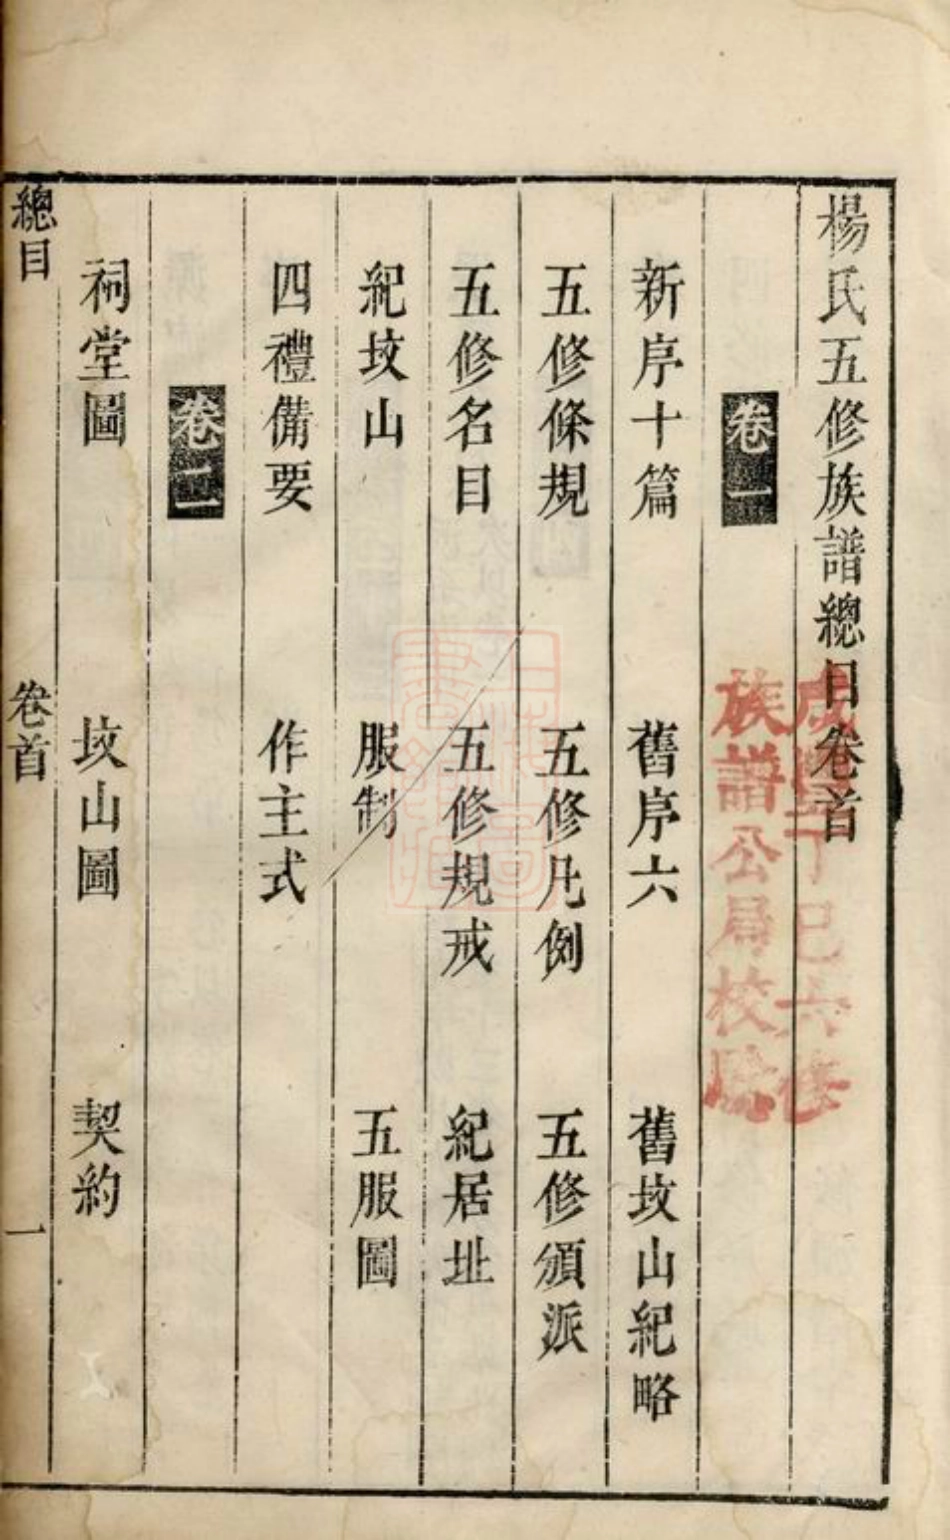 楊氏五修族譜總目卷首
卷一
新序十篇 舊序六 舊坟山紀略
五修條規 五修凡例 五修頒派
五修名目 五修規戒 紀居址
紀坟山 服制 五服圖
四禮備要 作主式
卷二
祠堂圖 坟山圖 契約
總目 卷首 一
咸豐丁巳六修
族譜公局校